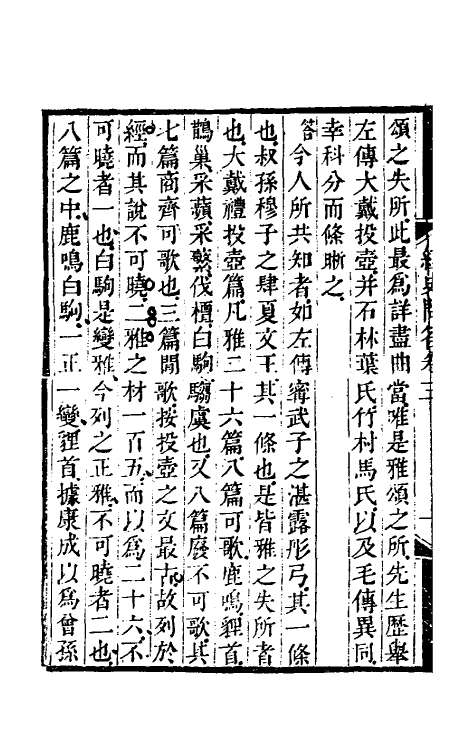 頌之失所此最爲詳盡曲當唯是雅頌之所先生歷舉
左傳大戴投壺并石林葉氏竹村馬氏以及毛傳異同
幸科分而條晰之
答今人所共知者如左傳甯武子之湛露彤弓其一條
也叔孫穆子之肆夏文王其一條也是皆雅之失所者
也大戴禮投壺篇凡雅二十六篇八篇可歌鹿鳴貍首
鵲巢采蘋采蘩伐檀白駒騶虞也又八篇廢不可歌其
七篇商齊可歌也三篇閒歌按投壺之文最古故列於
經而其說不可曉二雅之材一百五而以爲二十六不
可曉者一也白駒是變雅今列之正雅不可曉者二也
八篇之中鹿鳴白駒一正一變貍首據康成以爲曾孫